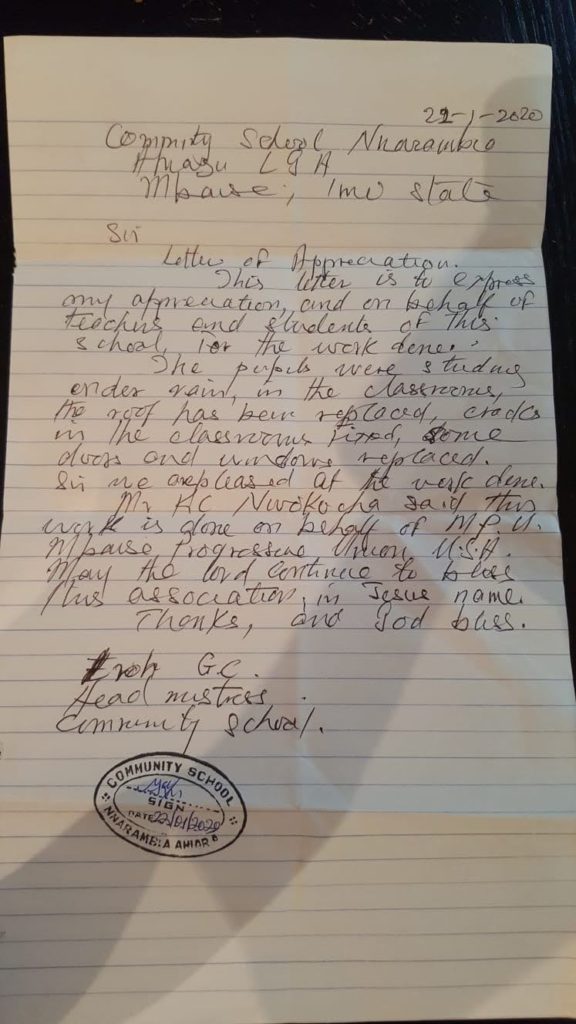 22-1-2020
Commnity School Nnarambia
Ahiazu L G A
Mbaise, Imo State
Sir
Letter of Appreciation.
This letter is to express
my appreciation, and on behalf of
teachers and students of this
school, for the work done.
The pupils were studing
under rain, in the classrooms,
the roof has been replaced, cracks
in the classrooms fixed, some
doors and windows replaced.
Sir we are pleased at the work done.
Mr KC Nwokocha said this
work is done on behalf of M.P.U.
Mbaise Progressive Union U.S.A.
May the lord continue to bless
this association, in Jesus name.
Thanks, and God bless.
G.C.
Head mistress
Community School.
COMMUNITY SCHOOL
SIGN
DATE 22/01/2020
NNARAMBIA AHIARA